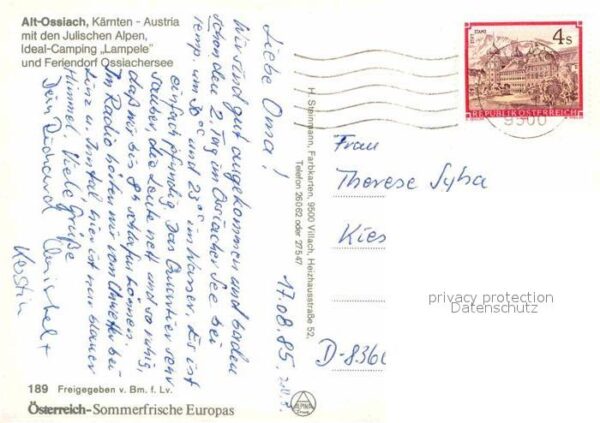 Alt-Ossiach, Kärnten - Austria
mit den Julischen Alpen,
Ideal-Camping „Lampele"
und Feriendorf Ossiachersee
Liebe Oma!
Wir sind gut angekommen und baden
schon den 2. Tag im Ossiacher See bei
temp. um 30°C und 23°C im Wasser. Es ist
einfach pfundig. Das Quartier sehr
sauber, die Leute nett und so ruhig,
daß wir bis 8h schlafen können.
Im Radio hörten wir vom Unwetter bei
Linz u. Inntal, hier ist nur blauer
Himmel. Viele Grüße
Dein Richard, Christel +
Kerstin
17.08.85
H. Steinmann, Farbkarten, 9500 Villach, Heizhausstraße 52,
Telefon 26062 oder 27547
STIFT STAMS
4 S
REPUBLIK ÖSTERREICH
9500
Frau
Therese Syha
Kies
D-8360
privacy protection
Datenschutz
189 Freigegeben v. Bm. f. Lv.
Österreich-Sommerfrische Europas
ALPINA